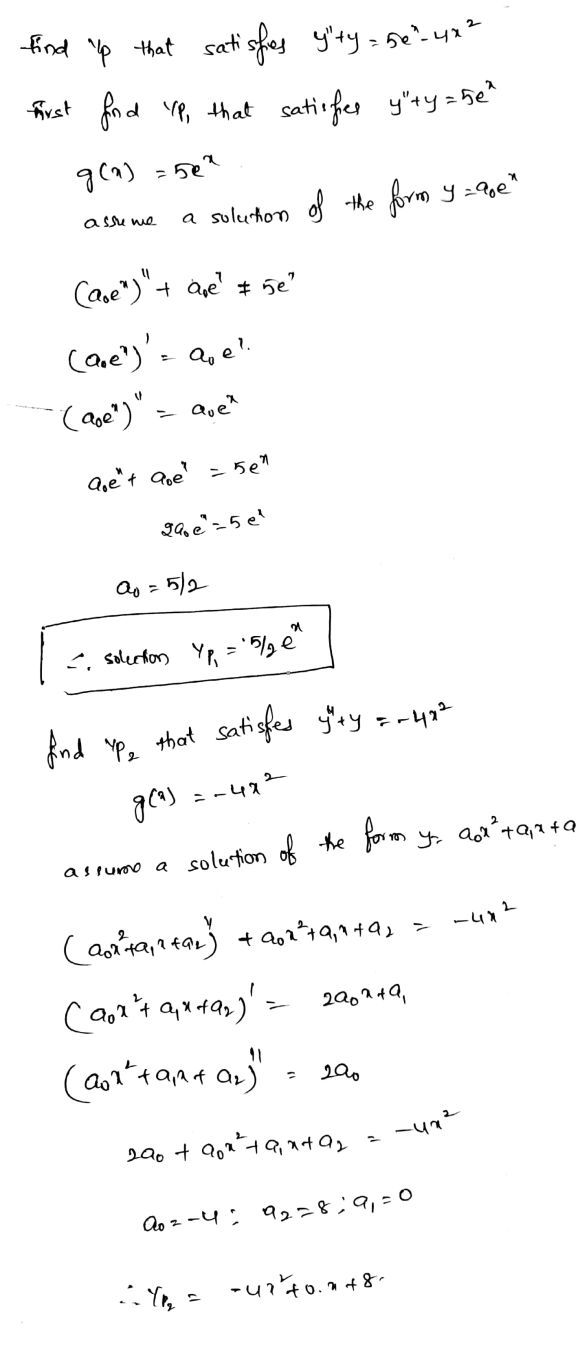 find yp that satisfies y"+y = 5e^x - 4x^2
first find yp₁ that satisfies y"+y = 5e^x
g(x) = 5e^x
assume a solution of the form y = a₀e^x
(a₀e^x)" + a₀e^x ≠ 5e^x
(a₀e^x)' = a₀e^x.
(a₀e^x)" = a₀e^x
a₀e^x + a₀e^x = 5e^x
2a₀e^x = 5e^x
a₀ = 5/2
∴ solution Yp₁ = 5/2 e^x
find yp₂ that satisfies y"+y = -4x^2
g(x) = -4x^2
assume a solution of the form y = a₀x^2+a₁x+a
(a₀x^2+a₁x+a₂)" + a₀x^2+a₁x+a₂ = -4x^2
(a₀x^2+a₁x+a₂)' = 2a₀x+a₁
(a₀x^2+a₁x+a₂)" = 2a₀
2a₀ + a₀x^2+a₁x+a₂ = -4x^2
a₀ = -4 ; a₂ = 8 ; a₁ = 0
∴ Yp₂ = -4x^2+0.x+8.